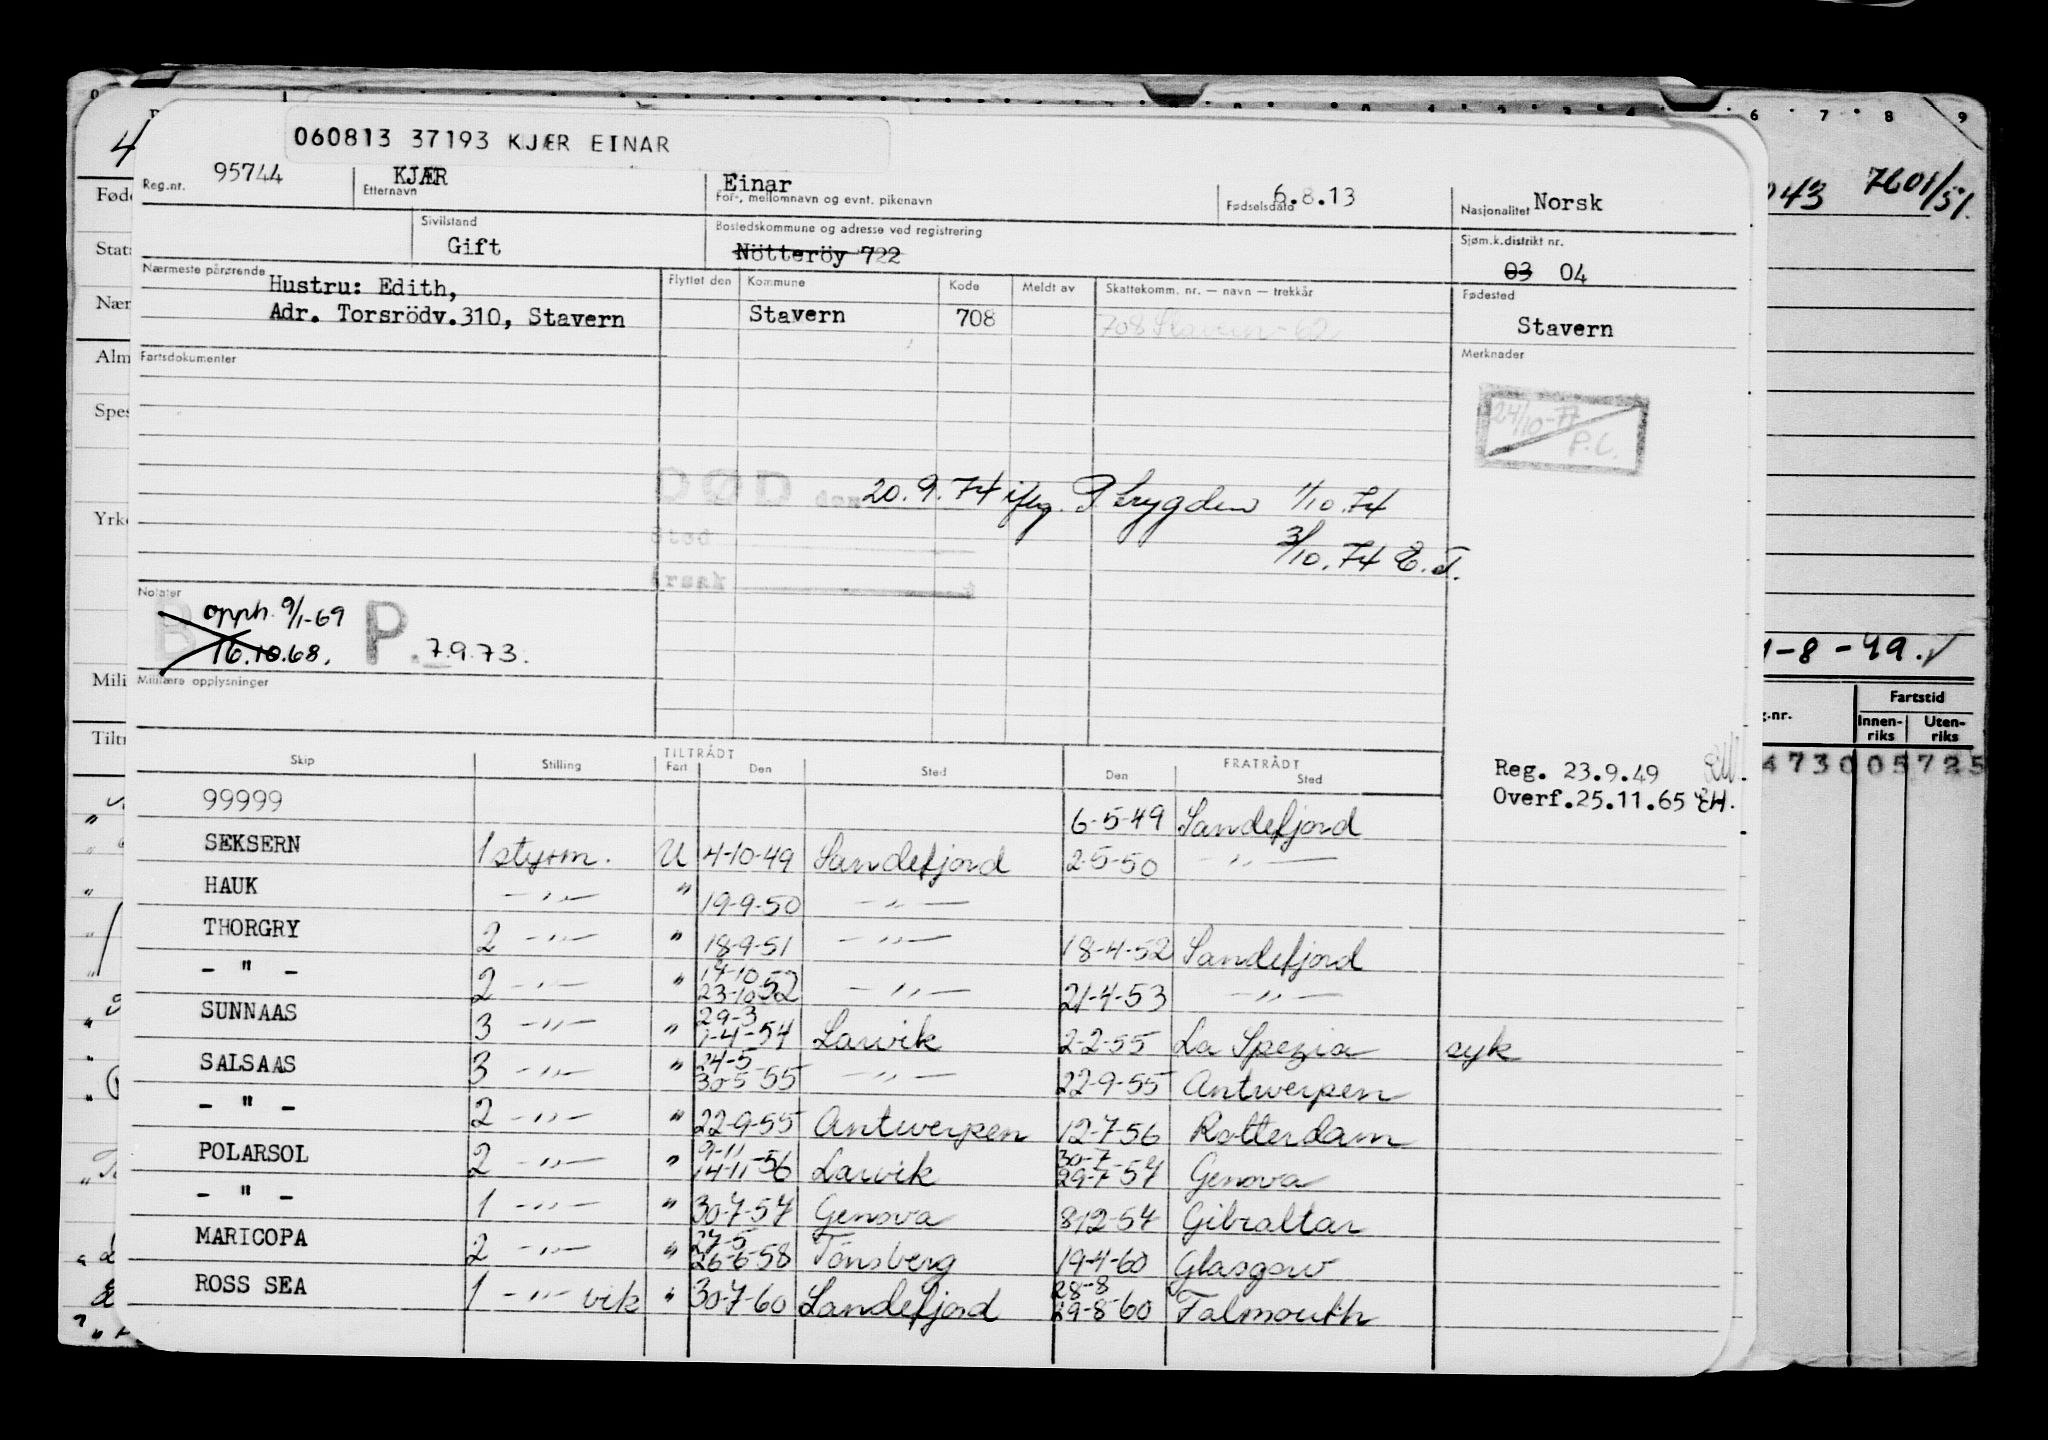 060813 37193 KJÆR EINAR
Reg.nr. 95744 KJÆR Etternavn Einar For-, mellomnavn og evnt. pikenavn 6.8.13 Fødselsdato Nasjonalitet Norsk
Sivilstand Gift Bostedskommune og adresse ved registrering Nötteröy 722 Sjøm.k.distrikt nr. 03 04
Nærmeste pårørende Hustru: Edith, Flyttet den Kommune Kode Meldt av Skattekomm. nr. — navn — trekkår Fødested
Adr. Torsrödv.310, Stavern Stavern 708 708 Stavern-62 Stavern
Fartsdokumenter Merknader
24/10-77
P.L.
DØD den 20.9.74 iflg. P trygden 1/10.74
Sted 3/10.74 E.T.
Årsak
Notater
B opph. 9/1-69
16.10.68. P. 7.9.73.
Militære opplysninger
TILTRÅDT FRATRÅDT
Skip Stilling Fart Den Sted Den Sted
Reg. 23.9.49
Overf.25.11.65 EH.
99999 6-5-49 Sandefjord
SEKSERN 1 styrm. U 4-10-49 Sandefjord 2-5-50 — " —
HAUK — " — " 19-9-50 — " —
THORGRY 2 — " — " 18-9-51 — " — 18-4-52 Sandefjord
- " - 2 — " — " 14-10 23-10-52 — " — 21-4-53 — " —
SUNNAAS 3 — " — " 29-3 1-4-54 Larvik 2-2-55 La Spezia syk
SALSAAS 3 — " — " 24-5 30-5-55 — " — 22-9-55 Antwerpen
- " - 2 — " — " 22-9-55 Antwerpen 12-7-56 Rotterdam
POLARSOL 2 — " — " 9-11 14-11-56 Larvik 30-7 29-7-57 Genova
- " - 1 — " — " 30-7-57 Genova 8-12-57 Gibraltar
MARICOPA 2 — " — " 27-5 26-6-58 Tönsberg 19-4-60 Glasgow
ROSS SEA 1 — " — vik " 30-7-60 Sandefjord 28-8 29-8-60 Falmouth
6 7 8 9
043 7601/51.
1-8-49.
g.nr. Fartstid
Innen-riks Uten-riks
4730 05 725
4
Føde
Stats
Nær
Alm
Spes
Yrke
Mili
Tiltr